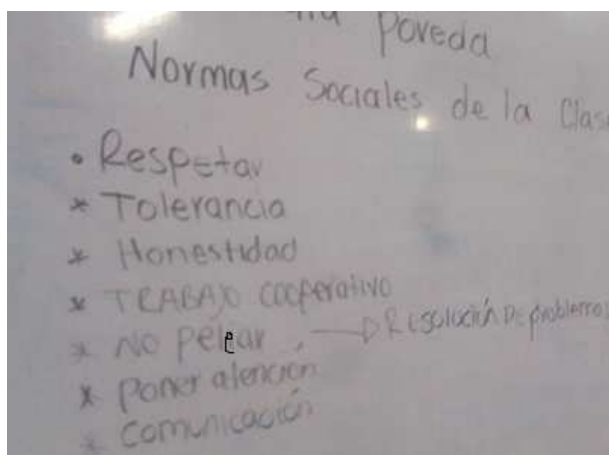 Poveda
Normas Sociales de la Clase
• Respetar
* Tolerancia
* Honestidad
* TRABAJO cooperativo
* NO pelear → Resolución De problemas
* poner atención
* comunicación